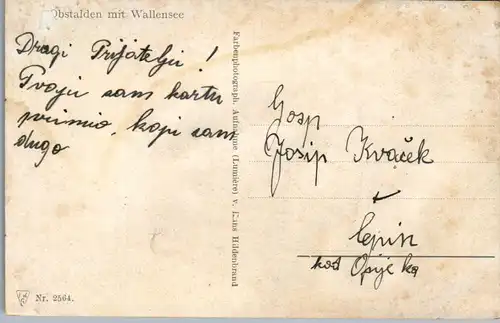 Obstalden mit Wallensee
Dragi Prijatelju!
Tvoju sam kartu
primio, koju sam
dugo
Farbenphotograph. Aufnahme (Lumière) v. Hans Hildenbrand
Gosp
Josip Kvaček
Čepin
kod Osijeka
Nr. 2564.